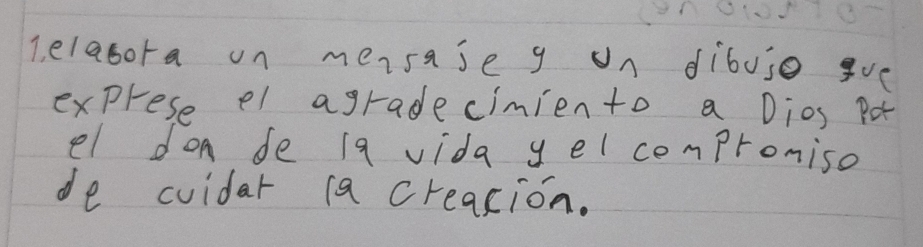 1. elabora un mensaje y un dibujo que
exprese el agradecimiento a Dios por
el don de la vida y el compromiso
de cuidar la creación.